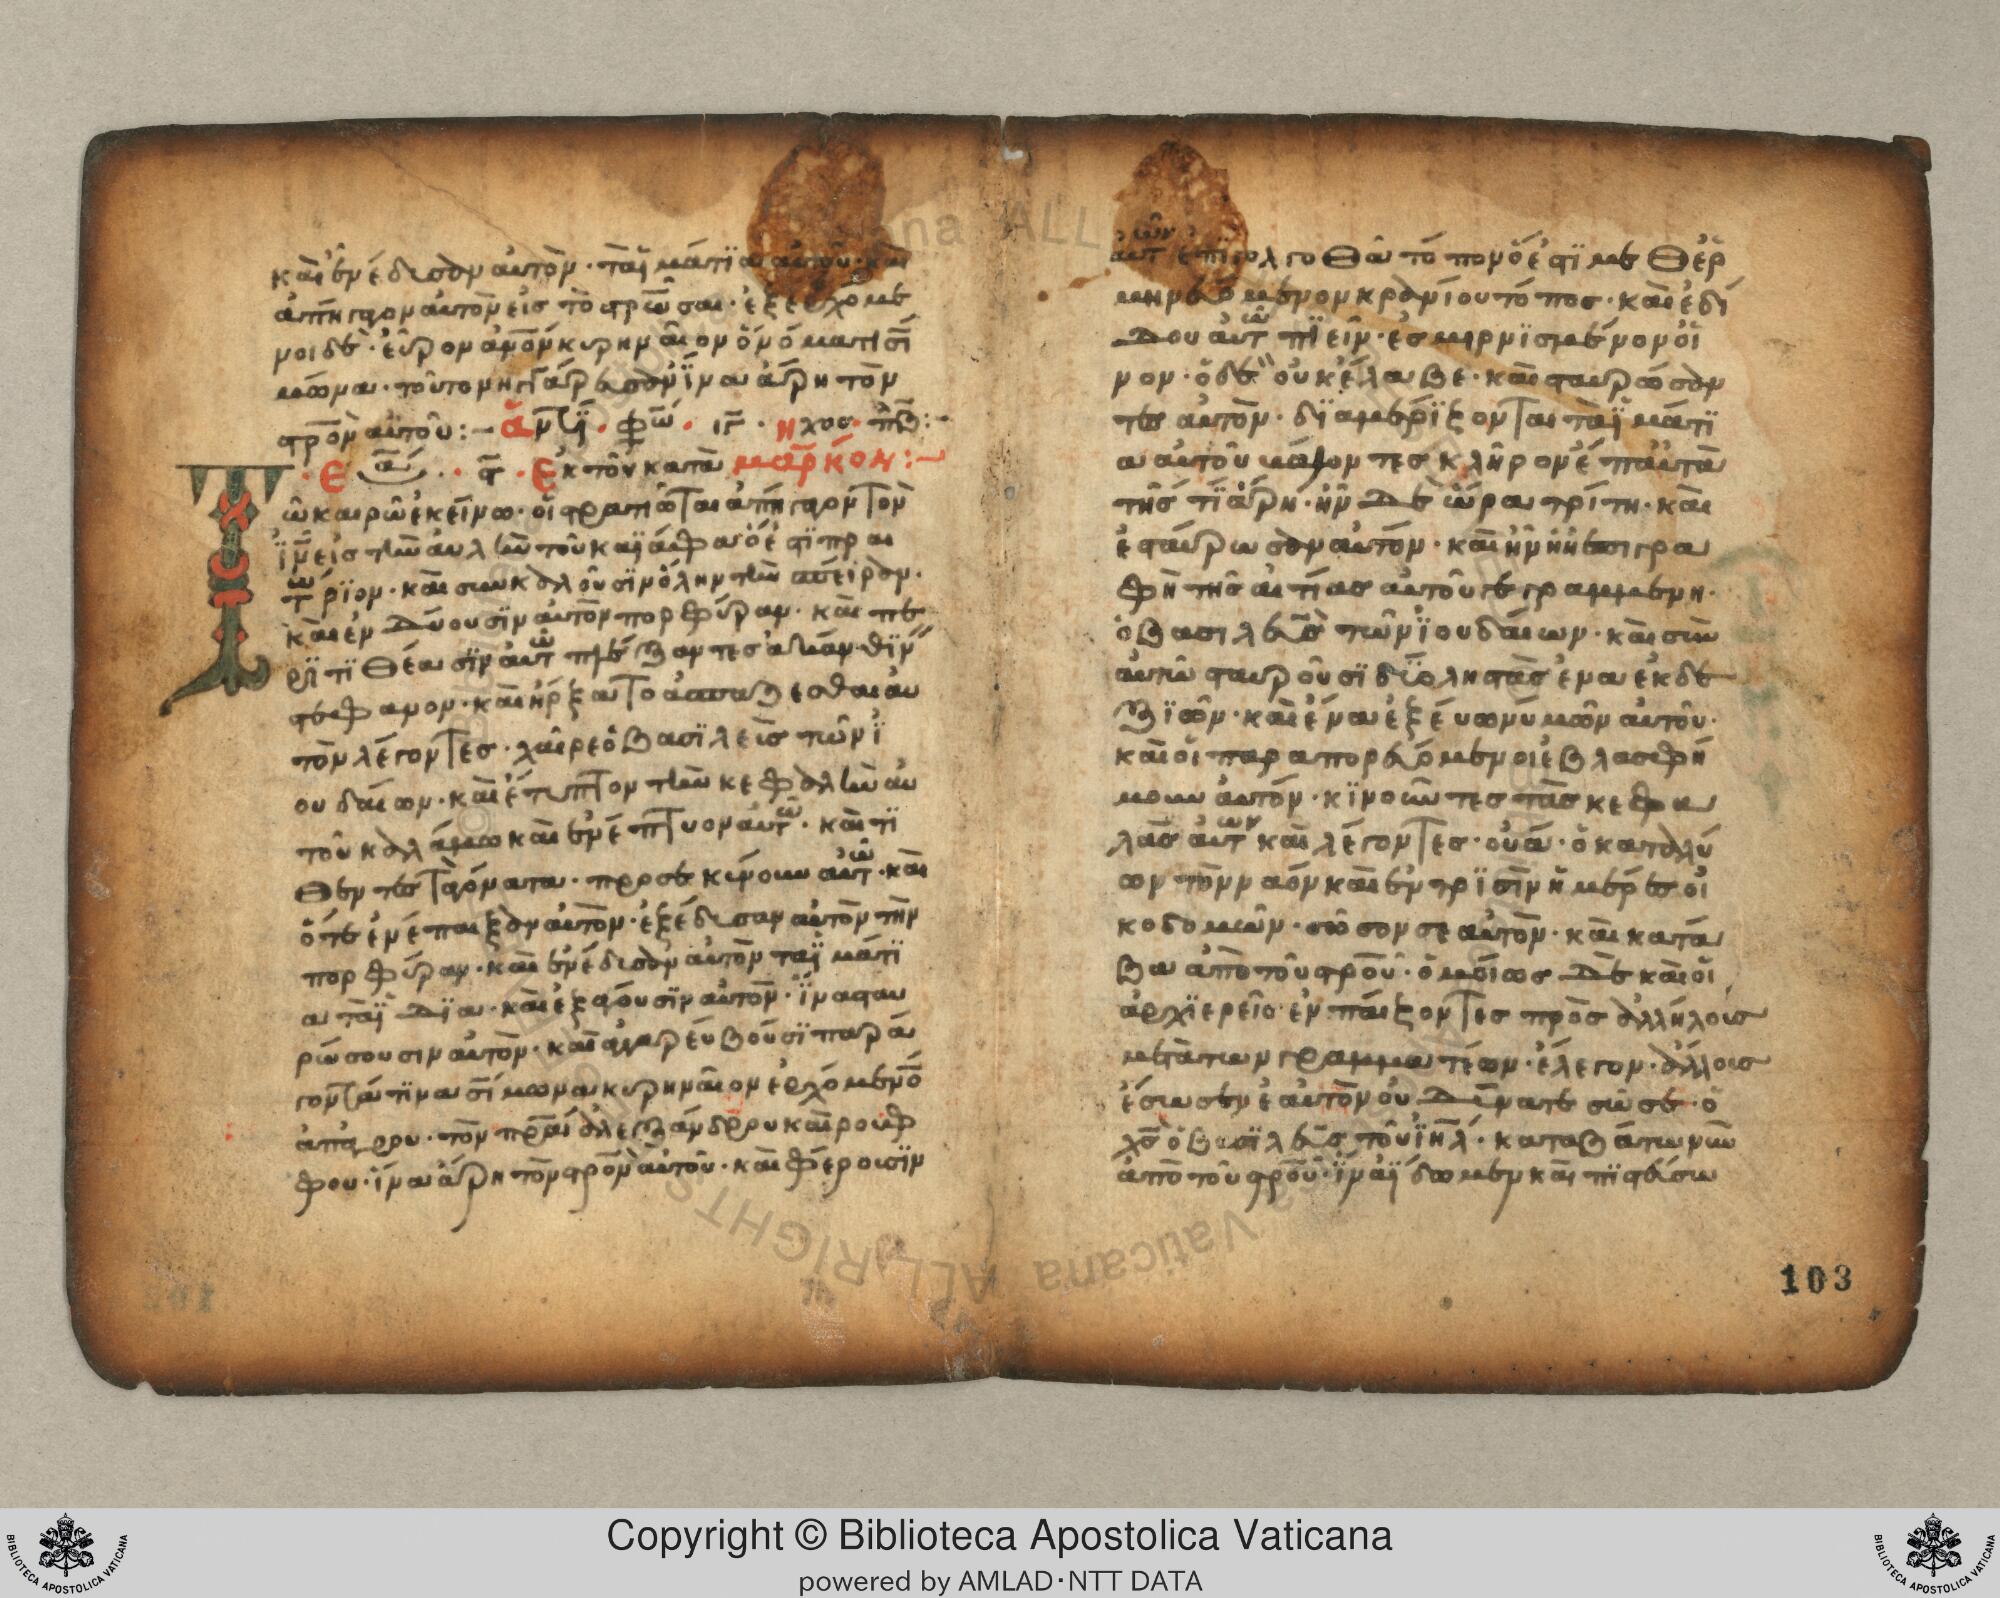 καὶ ἐνέδυσαν αὐτὸν · τὰ ἱμάτια αὐτοῦ · καὶ
ἀπήγαγον αὐτὸν εἰς τὸ στρῶσαι · ἐξερχόμε
νοι δὲ · εὗρον ἀνον κυρηναῖον ὀνόματι σί
μωνα · τοῦτον ἠγγάρευσαν ἵνα ἄρη τὸν
στρὸν αὐτοῦ :-
ἐκ τοῦ κατὰ μάρκον :-
ῶ καιρῶ ἐκείνω · οἱ στρατιῶται ἀπήγαγον τὸν
ιν εἰς τὴν αὐλὴν τοῦ καϊάφα ὅ ἐστι πραι
τώριον · καὶ συνκαλοῦσιν ὅλην τὴν σπείραν ·
καὶ ἐνδύουσιν αὐτὸν πορφύραν · καὶ πε
ριτιθέασιν αὐτῶ πλέξαντες ἀκάνθιν
στέφανον · καὶ ἤρξαντο ἀσπάζεσθαι αὐ
τὸν λέγοντες · χαῖρε ὁ βασιλεὺς τῶν ἰ
ουδαίων · καὶ ἔτυπτον τὴν κεφαλὴν αὐ
τοῦ καλάμω καὶ ἐνέπτυον αὐτῶ · καὶ τι
θέντες τὰ γόνατα · προσεκύνουν αὐτῶ · καὶ
ὅτε ἐνέπαιξαν αὐτὸν · ἐξέδυσαν αὐτὸν τὴν
πορφύραν · καὶ ἐνέδυσαν αὐτὸν τὰ ἱμάτι
α τὰ ἴδια · καὶ ἐξάγουσιν αὐτὸν · ἵνα σταυ
ρώσουσιν αὐτὸν · καὶ ἀγγαρεύουσι παρά
γοντά τινα σίμωνα κυρηναῖον ἐρχόμενο
ἀπ ἀγρου · τὸν πρα ἀλεξάνδρου καὶ ρούφ
φου · ἵνα ἄρη τὸν στρὸν αὐτοῦ · καὶ φέρουσιν
αὐτῶν ἐπὶ γολγοθᾶ τόπον ὅ ἐστι μεθερ
μηνευόμενον κρανίου τόπος · καὶ ἐδί
δου αὐτῶ πιεῖν · ἐσμυρνισμένον οἶ
νον · ὁ δὲ οὐκ ἔλαβε · καὶ σταυρώσαν
τες αὐτὸν · διαμερίζονται τὰ ἱμάτι
α αὐτοῦ βάλοντες κλῆρον ἐπ αὐτὰ
τῆς τί ἄρη · ἦν δὲ ὥρα τρίτη · καὶ
ἐσταύρωσαν αὐτόν · καὶ ἦν ἡ ἐπιγρα
φὴ τῆς αἰτίας αὐτοῦ ἐπιγεγραμμένη ·
ὁ βασιλεὺς τῶν ἰουδαίων · καὶ σὺν
αὐτῶ σταυροῦσι δύο ληστὰς ἕνα ἐκ δε
ξιῶν · καὶ ἕνα ἐξ εὐωνύμων αὐτοῦ ·
καὶ οἱ παραπορευόμενοι ἐβλασφή
μουν αὐτόν · κινοῦντες τὰς κεφα
λὰς αὐτῶν καὶ λέγοντες · οὐά · ὁ καταλύ
ων τὸν ναὸν καὶ ἐν τρισὶν ἡμέραις οἰ
κοδομῶν · σῶσον σεαὐτὸν · καὶ κατά
βα ἀπὸ τοῦ στροῦ · ὁμοίως δὲ καὶ οἱ
ἀρχιερεῖς ἐνπαίζοντες πρὸς ἀλλήλους
μετὰ τῶν γραμματέων · ἔλεγον · ἄλλους
ἔσωσεν ἑαυτὸν οὐ δύναται σῶσαι · ὁ
χς ὁ βασιλεὺς τοῦ ιηλ · καταβάτω νῦν
ἀπὸ τοῦ στροῦ · ἵνα ἴδωμεν καὶ πιστεύσω
103
Copyright © Biblioteca Apostolica Vaticana
powered by AMLAD·NTT DATA
BIBLIOTECA APOSTOLICA VATICANA
BIBLIOTECA APOSTOLICA VATICANA